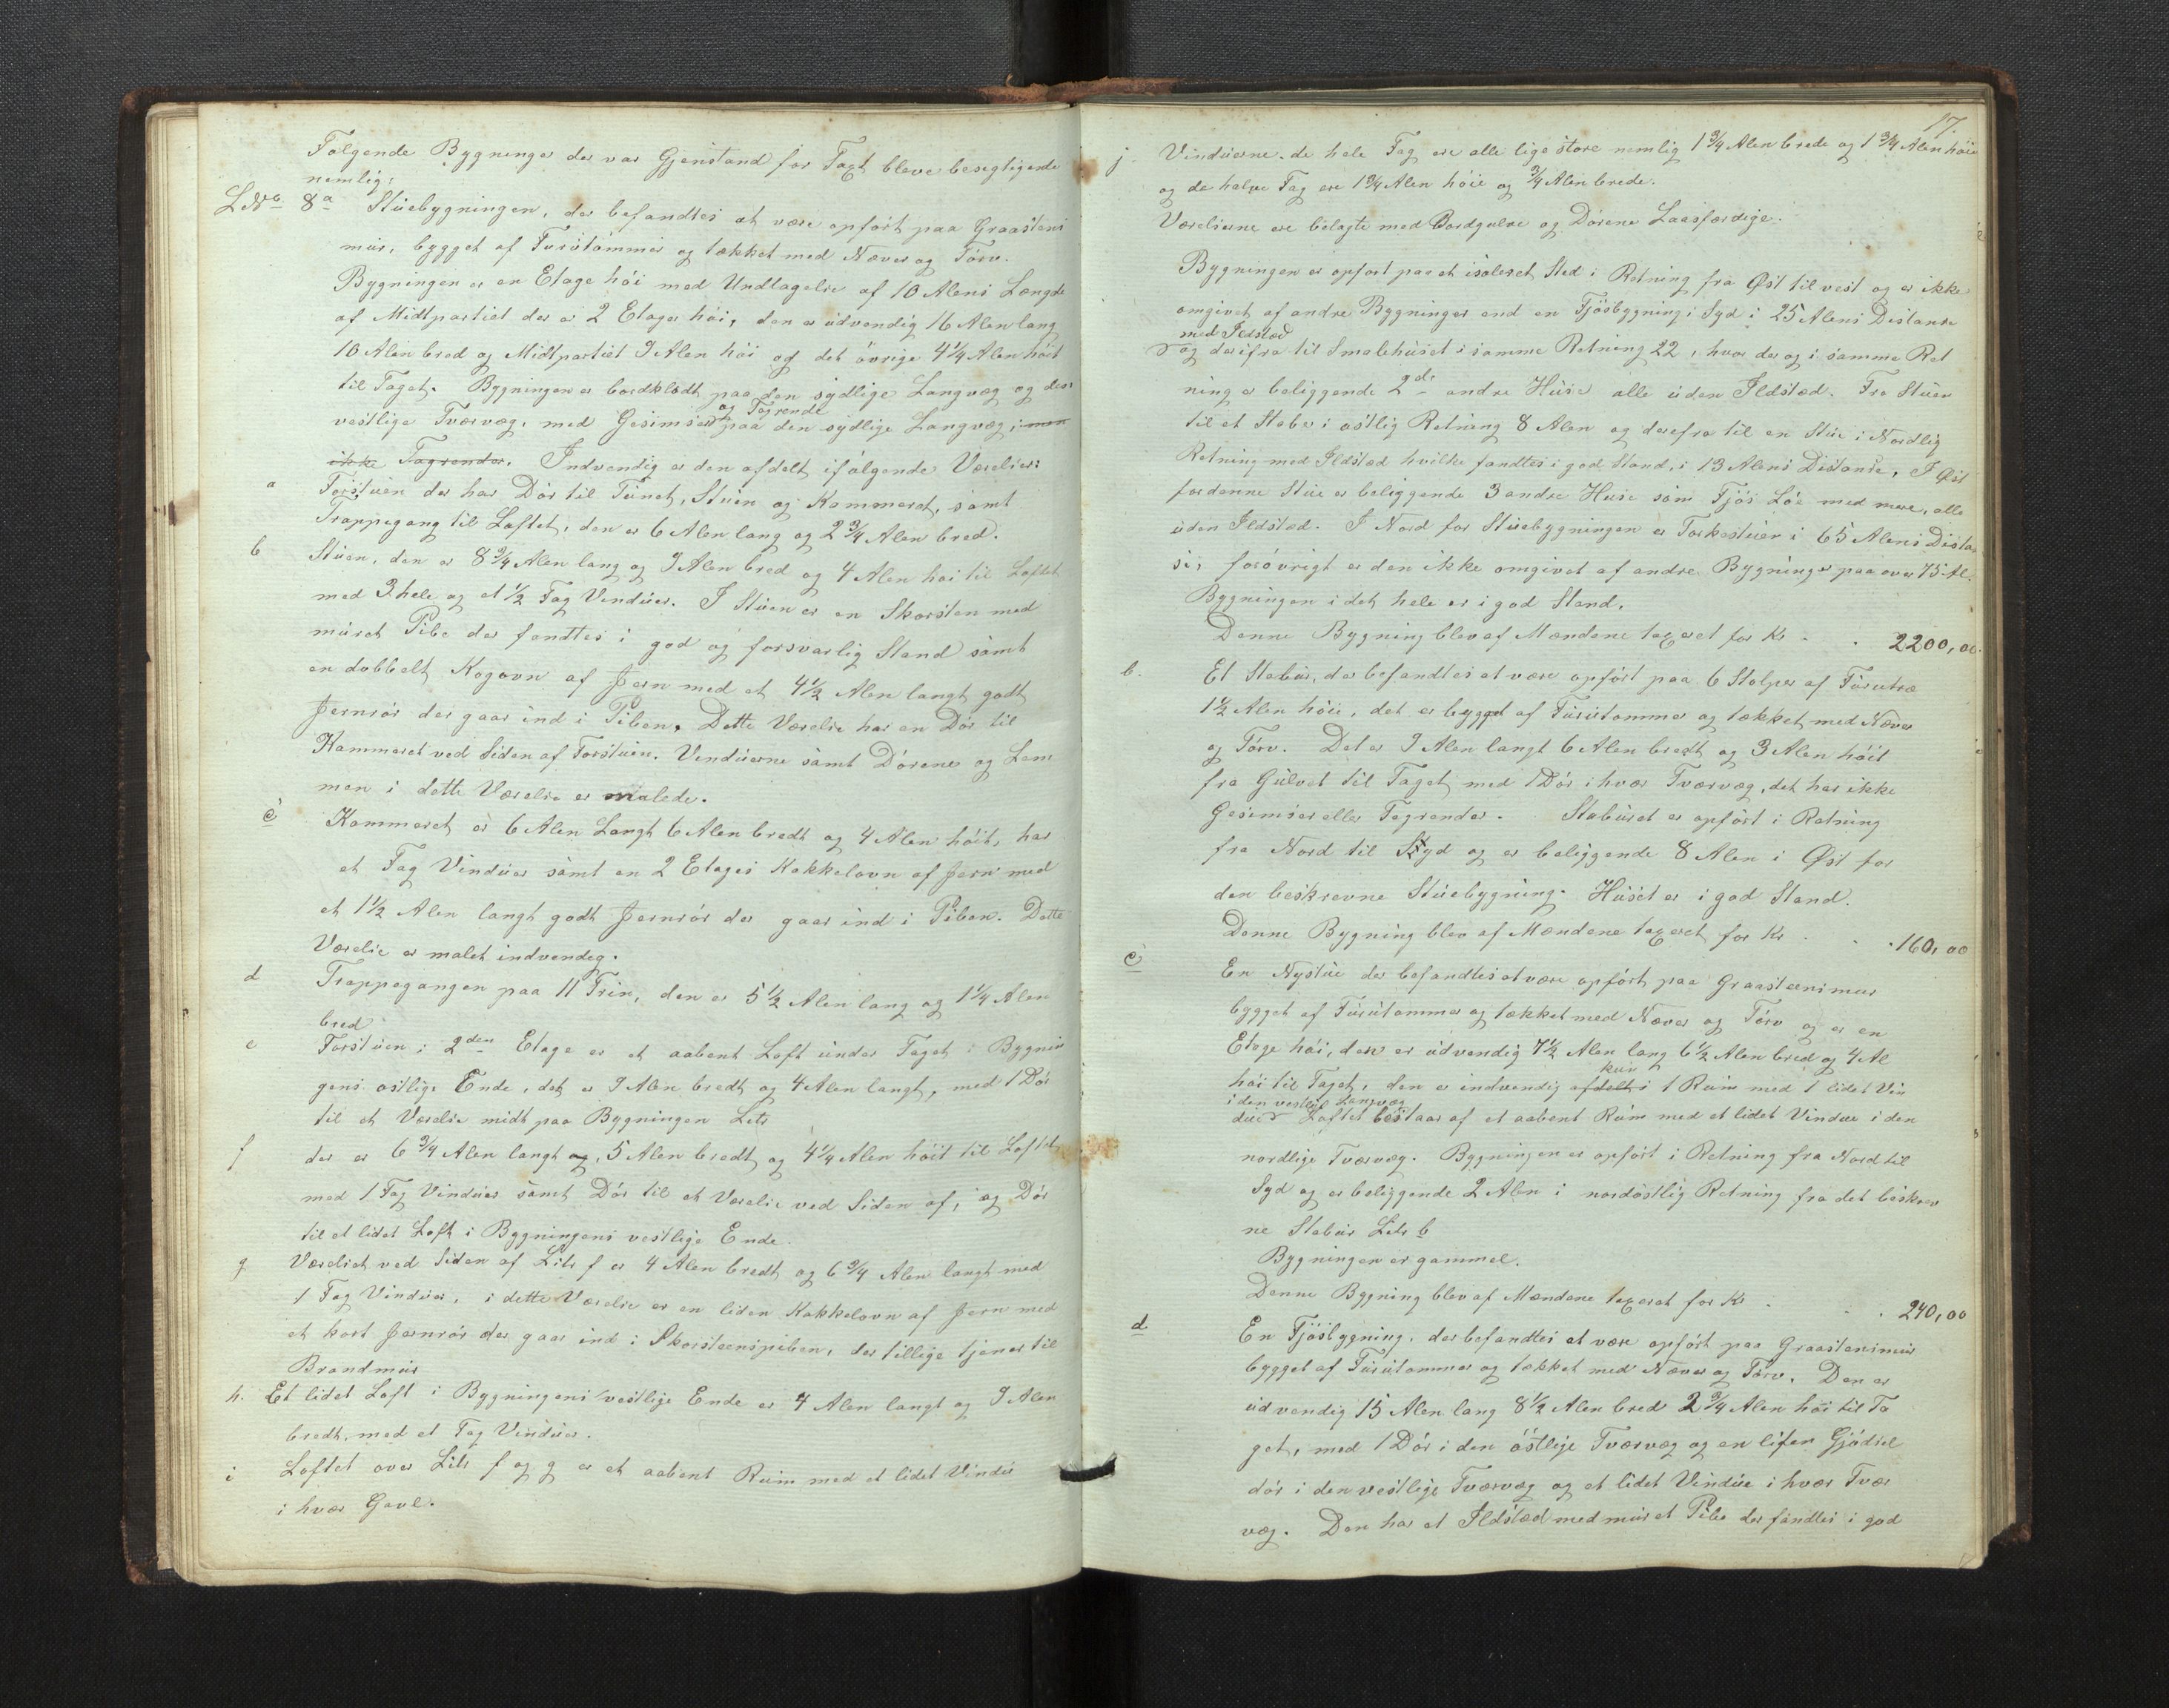 Følgende Bygninger der var Gjenstand for Taxt bleve besegtigende
nemlig:
L. No 8 a Stúebygningen, der befandtes at være opført paa Graasteins
múr, bygget af Furútømmer og tækket med Næver og Tørv.
Bygningen er en Etage høi med Undtagelse af 10 Alens Længde
af Midtpartiet der er 2 Etager høi, den er údvendig 16 Alen lang
10 Alen bred og Midtpartiet 9 Alen høi og det øvrige 4 1/4 Alen høit
til Taget. Bygningen er bordklædt paa den sydlige Langvæg og den
og Tagrende
vestlige Tværvæg, med Gesimser paa den sydlige Langvæg, men
ikke Tagrender. Indvendig er den afdelt i følgende Værelser:
a Forstúen der har Dør til Túnet, Stúen og Kammeret, samt
Trappegang til Loftet, den er 6 Alen lang og 2 3/4 Alen bred.
b Stúen, den er 8 3/4 Alen lang og 9 Alen bred og 4 Alen høi til Loftet
med 3 hele og et 1/2 Fag Vindúer. I Stúen er en Skorsten med
múret Pibe der fandtes i god og forsvarlig Stand samt
en dobbelt Kogovn af Jern med et 4 1/2 Alen langt godt
Jernrør der gaar ind i Piben. Dette Værelse har en Dør til
Kammeret ved Siden af Forstúen. Vindúerne samt Dørene og Lem
men i dette Værelse er malede.
c Kammeret er 6 Alen Langt 6 Alen bredt og 4 Alen høit, har
et Fag Vindúer samt en 2 Etages Kakkelovn af Jern med
et 1 1/2 Alen langt godt Jernrør der gaar ind i Piben. Dette
Værelse er malet indvendig.
d Trappegangen paa 11 Trin, den er 5 1/2 Alen lang og 1 1/4 Alen
bred
e Forstúen i 2den Etage er et aabent Loft únder Taget i Bygnin
gens østlige Ende, det er 9 Alen bredt og 4 Alen langt, med 1 Dør
til et Værelse midt paa Bygningen Litr
f der er 6 3/4 Alen langt og, 5 Alen bredt og 4 1/4 Alen høit til Loftet,
med 1 Fag Vindúer samt Dør til et Værelse ved Siden af, og Dør
til et lidet Loft i Bygningens vestlige Ende.
g Værelset ved Siden af Litr f er 4 Alen bredt og 6 3/4 Alen langt med
1 Fag Vindúer, i dette Værelse er en liden Kakkelovn af Jern med
et kort Jernrør der gaar ind i Skorsteenspiben, der tillige tjener til
Brandmúr
h. Et lidet Loft i Bygningens vestlige Ende er 4 Alen langt og 9 Alen
bredt, med et Fag Vindúer.
i Loftet over Litr f og g er et aabent Rúm med et lidet Vindú
i hver Gavl.
17.
j. Vindúerne. de hele Fag ere alle lige store nemlig 1 3/4 Alen brede og 1 3/4 Alen høie
og de halve Fag ere 1 3/4 Alen høie og 3/4 Alen brede.
Værelserne ere belagte med Bordgulve og Dørene Laasfærdige.
Bygningen er opført paa et isoleret Sted i Retning fra Øst til vest og er ikke
omgivet af andre Bygninger end en Fjøsbygning i Syd i 25 Alens Distanse
med Ildsted
og derifra til Smalehúset i samme Retning 22, hvor der og i samme Ret
ning er beliggende 2de andre Húse alle úden Ildsted. Fra Stúen
til et Stabur i østlig Retning 8 Alen og derefra til en Stúe i Nordlig
Retning med Ildsted hvilke fandtes i god Stand, i 13 Alens Distanse, I Øst
for denne Stúe er beliggende 3 andre Húse som Fjøs Løe med mere, alle
úden Ildsted. I Nord for Stúebygningen er Torkestúen i 65 Alens Distan
se, forøvrigt er den ikke omgivet af andre Bygninger paa over 75 Al.
Bygningen i det hele er i god Stand.
Denne Bygning blev af Mændene taxeret for Kr . . 2200,00.
b. Et Stabúr, der befandtes at være opført paa 6 Stolper af Fúrutræ
1 1/2 Alen høie, det er bygget af Fúrútømmer og tækket med Næver
og Tørv. Det er 9 Alen langt 6 Alen bredt og 3 Alen høit
fra Gúlvet til Taget med 1 Dør i hver Tværvæg, det har ikke
Gesimser eller Tagrender. Stabúret er opført i Retning
fra Nord til Syd og er beliggende 8 Alen i Øst for
den beskrevne Stúebygning. Húset er i god Stand.
Denne Bygning blev af Mændene taxeret for Kr . . . 160,00
c En Nystúe der befandtes at være opført paa Graasteensmur
bygget af Fúrútømmer og tækket med Næver og Tørv og er en
Etage høi, den er údvendig 7 1/2 Alen lang 6 1/2 Alen bred og 4 Al
kún
høi til Taget, den er indvendig afdelt i 1 Rúm med 1 lidet Vin
i den vestlige Langvæg
dúe Loftet bestaar af et aabent Rúm med et lidet Vindue i den
nordlige Tværvæg. Bygningen er opført i Retning fra Nord til
Syd og er beliggende 2 Alen i nordøstlig Retning fra det beskrev
ne Stabúr Litr b
Bygningen er gammel.
Denne Bygning blev af Mændene taxeret for Kr . . . 240,00
d En Fjøsbygning, der befandtes at være opført paa Graastensmúr
bygget af Fúrútømmer og tækket med Næver og Tørv. Den er
údvendig 15 Alen lang 8 1/2 Alen bred 2 3/4 Alen høi til Ta
get, med 1 Dør i den østlige Tværvæg og en liten Gjødsel
dør i den vestlige Tværvæg og et lidet Vindúe i hver Tvær
væg. Den har et Ildsted med múret Pibe der fandtes i god